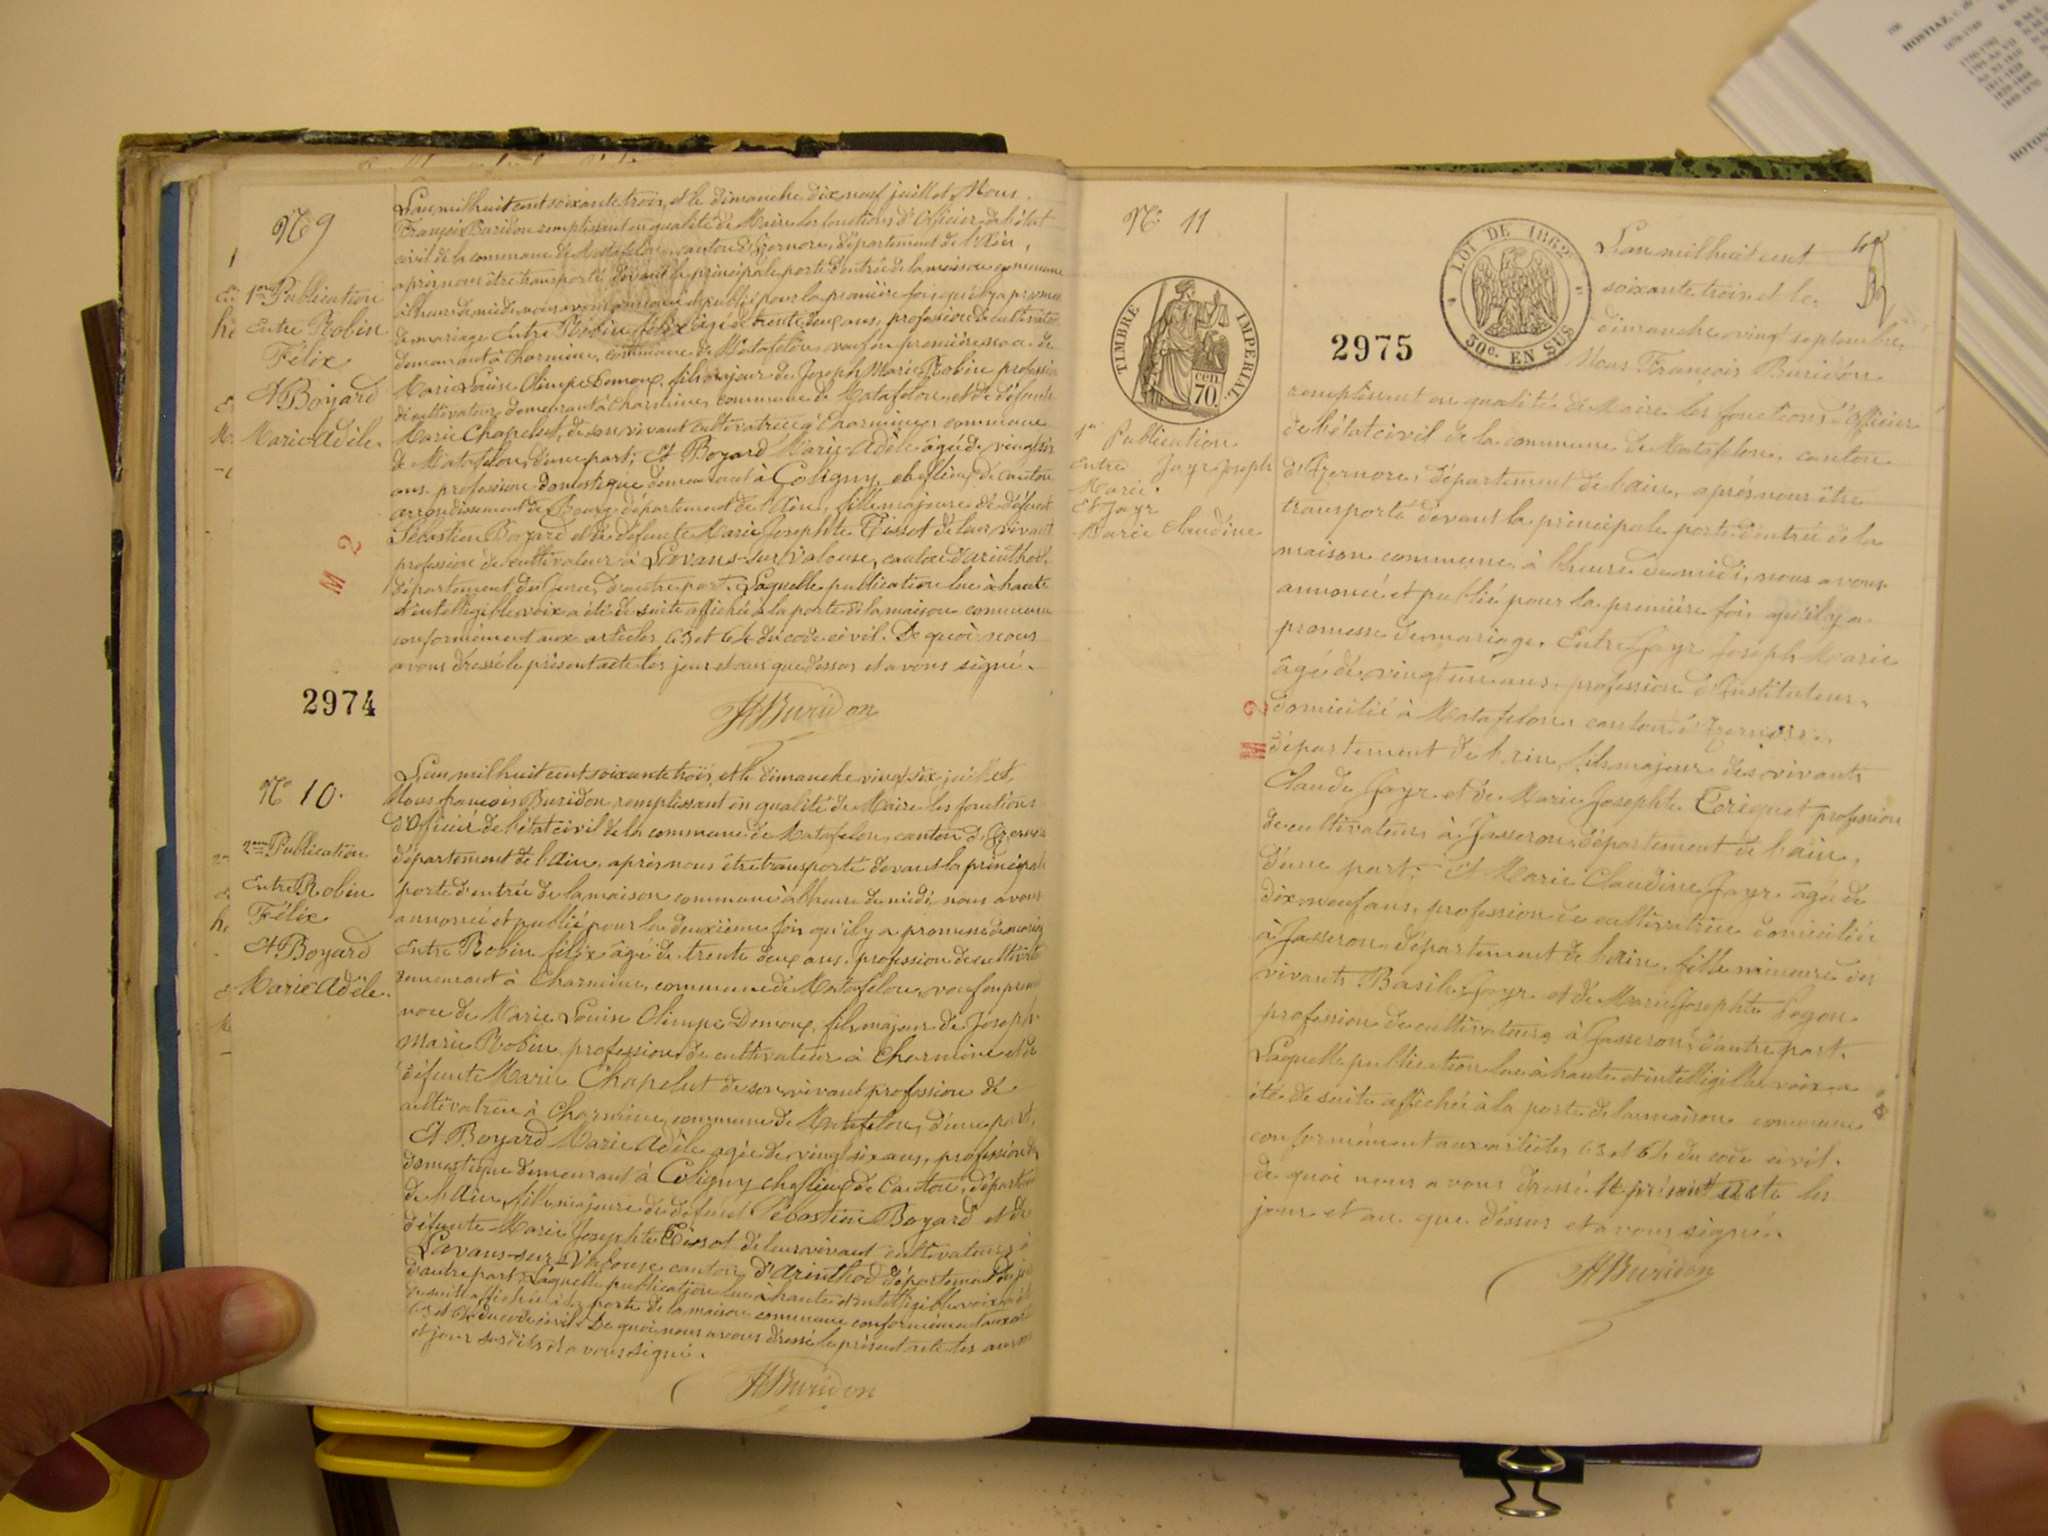 N° 9
1ère Publication
Entre Robin
Félix
Et Boyard
Marie Adèle.
L'an mil huit cent soixante trois, et le dimanche dix neuf juillet, Nous
François Buridon remplissant en qualité de Maire les fonctions d'Officier de l'état
civil de la commune de Matafelon, canton d'Izernore, département de l'Ain,
après nous être transporté devant la principale porte d'entrée de la maison commune
à l'heure de midi, nous avons annoncé et publié pour la première fois qu'il y a promesse
de mariage Entre Robin félix âgé de trente deux ans, profession de cultivateur
demeurant à Charmine, commune de Matafelon, veuf en première noce de
Marie Louise Olimpe Demoux, fils majeur de Joseph Marie Robin profession
de cultivateur demeurant à Charmine, commune de Matafelon, et de défunte
Marie Chapelut, de son vivant cultivatrice à Charmine, commune
de Matafelon, d'une part; Et Boyard Marie Adèle âgée de vingt six
ans, profession domestique demeurant à Coligny, cheflieu de canton
arrondissement de Bourg, département de l'Ain, fille majeure de défunt
Sébastien Boyard et de défunte Marie Josephte Tissot de leur vivant
profession de cultivateur à Lavans-sur-Valouse, canton d'arinthod,
département du Jura, d'autre part. Laquelle publication lue à haute
et intelligible voix a été de suite affichée à la porte de la maison commune
conformément aux articles 63 et 64 du code civil. De quoi nous
avons dressé le présent acte les jour et an que dessus et avons signé.
2974
Buridon
N° 10.
2ème Publication
Entre Robin
Félix
Et Boyard
Marie Adèle.
L'an mil huit cent soixante trois, et le dimanche vingt six juillet,
Nous françois Buridon remplissant en qualité de Maire les fonctions
d'Officier de l'état civil de la commune de Matafelon, canton d'Izernore
département de l'ain, après nous être transporté devant la principale
porte d'entrée de la maison commune à l'heure de midi, nous avons
annoncé et publié pour la deuxième fois qu'il y a promesse de mariage
Entre Robin félix âgé de trente deux ans, profession de cultivateur
demeurant à Charmine, commune de Matafelon, veuf en première
noce de Marie Louise Olimpe Demoux, fils majeur de Joseph
Marie Robin profession de cultivateur à Charmine et de
défunte Marie Chapelut de son vivant profession de
cultivatrice à Charmine, commune de Matafelon, d'une part,
Et Boyard Marie Adèle âgée de vingt six ans, profession de
domestique demeurant à Coligny cheflieu de Canton, département
de l'Ain, fille majeure de défunt Sébastien Boyard et de
défunte Marie Josephte Tissot de leur vivant cultivateurs à
Lavans-sur-Valouse canton d'Arinthod département du jura
d'autre part. Laquelle publication lue à haute et intelligible voix a été
de suite affichée à la porte de la maison commune conformément aux articles
63 et 64 du code civil. De quoi nous avons dressé le présent acte les an
et jour susdits et avons signé.
Buridon
N° 11
TIMBRE IMPERIAL
cen. 70.
1re Publication
Entre Jayr Joseph
Marie.
Et Jayr
Marie Claudine
2975
LOI DE 1862
50c. EN SUS
L'an mil huit cent
soixante trois et le
dimanche vingt septembre,
Nous François Buridon
remplissant en qualité de Maire les fonctions d'Officier
de l'état civil de la commune de Matafelon, canton
d'Izernore, département de l'ain, après nous être
transporté devant la principale porte d'entrée de la
maison commune, à l'heure de midi, nous avons
annoncé et publié pour la première fois qu'il y a
promesse de mariage, Entre Jayr Joseph Marie
âgé de vingt un ans, profession d'Instituteur,
domicilié à Matafelon, canton d'Izernore,
département de l'ain, fils majeur des vivants
Claude Jayr et de Marie Josephte Toriquet profession
de cultivateurs à Jasseron, département de l'ain,
d'une part, Et Marie Claudine Jayr âgée de
dix neuf ans, profession de cultivatrice domiciliée
à Jasseron, département de l'ain, fille mineure des
vivants Basile Jayr et de Marie Josephte
profession de cultivateurs à Jasseron, d'autre part.
Laquelle publication lue à haute et intelligible voix a
été de suite affichée à la porte de la maison commune
conformément aux articles 63 et 64 du code civil.
de quoi nous avons dressé le présent acte les
jour et an que dessus et avons signé.
Buridon